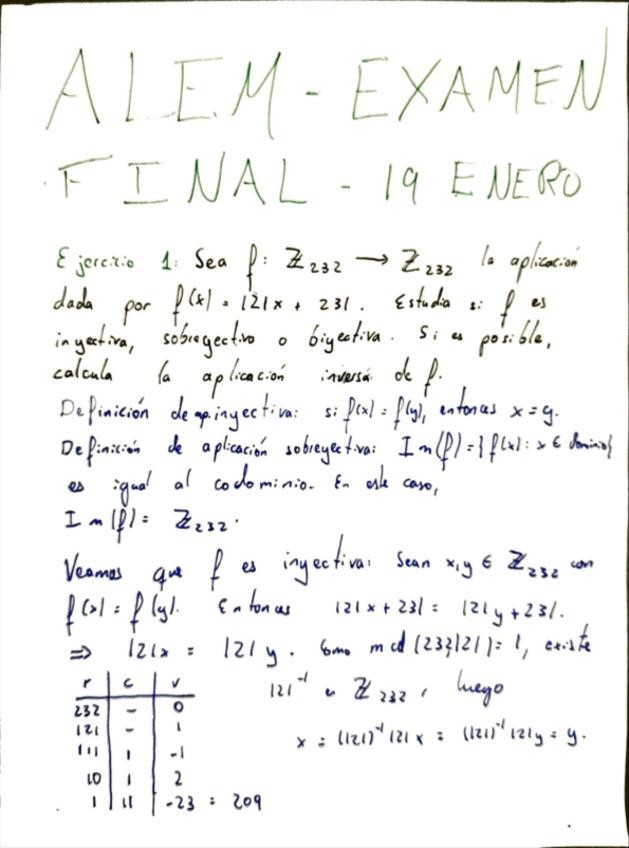 ALEM - EXAMEN
FINAL - 19 ENERO
Ejercicio 1: Sea f: ℤ₂₃₂ → ℤ₂₃₂ la aplicación
dada por f(x) = 121x + 231. Estudia si f es
inyectiva, sobreyectiva o biyectiva. Si es posible,
calcula la aplicación inversa de f.
Definición de ap. inyectiva: si f(x) = f(y), entonces x = y.
Definición de aplicación sobreyectiva: Im(f) = {f(x): x ∈ dominio}
es igual al codominio. En este caso,
Im(f) = ℤ₂₃₂.
Veamos que f es inyectiva: Sean x,y ∈ ℤ₂₃₂ con
f(x) = f(y). Entonces 121x + 231 = 121y + 231.
⇒ 121x = 121y. Como mcd(232,121) = 1, existe
121⁻¹ en ℤ₂₃₂, luego
x = (121)⁻¹ 121x = (121)⁻¹ 121y = y.
r c v
232 - 0
121 - 1
111 1 -1
10 1 2
1 11 -23 = 209